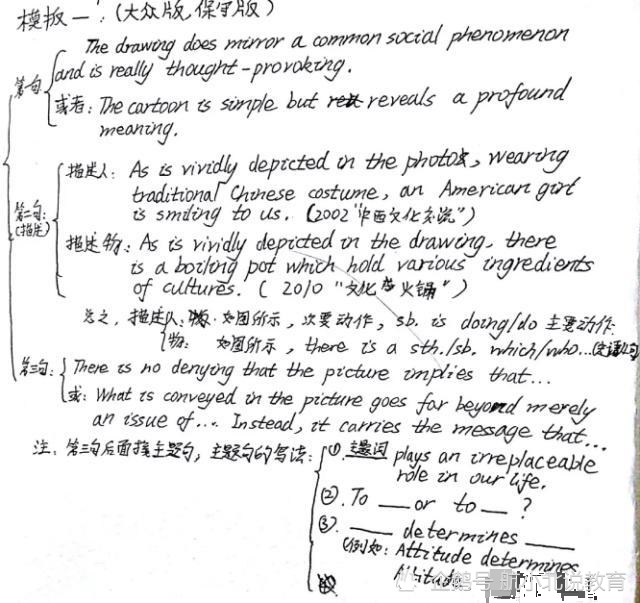 模板一:(大众版,保守版)
第一句 The drawing does mirror a common social phenomenon
and is really thought-provoking.
或者: The cartoon is simple but reveals a profound
meaning.
第二句:(描述) 描述人: As is vividly depicted in the photo, wearing
traditional Chinese costume, an American girl
is smiling to us. (2002 "中西文化交流")
描述物: As is vividly depicted in the drawing, there
is a boiling pot which hold various ingredients
of cultures. (2010 "文化 火锅")
总之,描述人: 如图所示,次要动作, sb. is doing/do 主要动作.
物: 如图所示, there is a sth./sb. which/who...(定语从句
第三句: There is no denying that the picture implies that...
或: What is conveyed in the picture goes far beyond merely
an issue of.... Instead, it carries the message that...
注:第三句后面接主题句,主题句的写法: ①.主题词 plays an irreplaceable
role in our life.
②. To __ or to __ ?
③. ____ determines ____
(例如: Attitude determines
Altitude
企鹅号 说教育